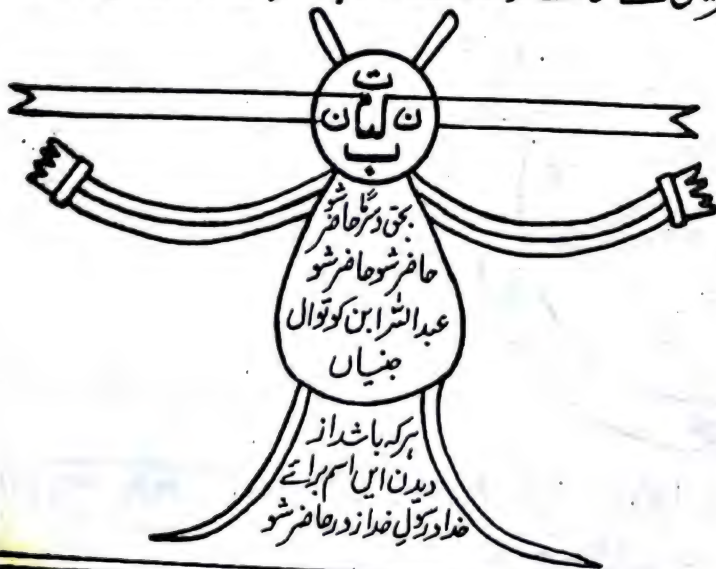 ت
ن ن
ب
بحق دستگیر حاضر شو
حاضر شو حاضر شو
عبداللہ ابن کوتوال
جنیاں
ہر کہ باشد از
دیدن ایں اسم برائے
خدا و رسولِ خدا زود حاضر شو